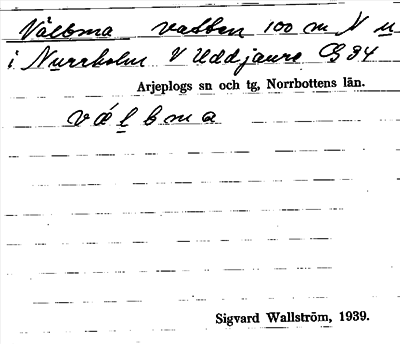 Välbma vatten 100 m N u
i Nurrholm V Uddjaure G 34
Arjeplogs sn och tg, Norrbottens län.
vál b m a
Sigvard Wallström, 1939.